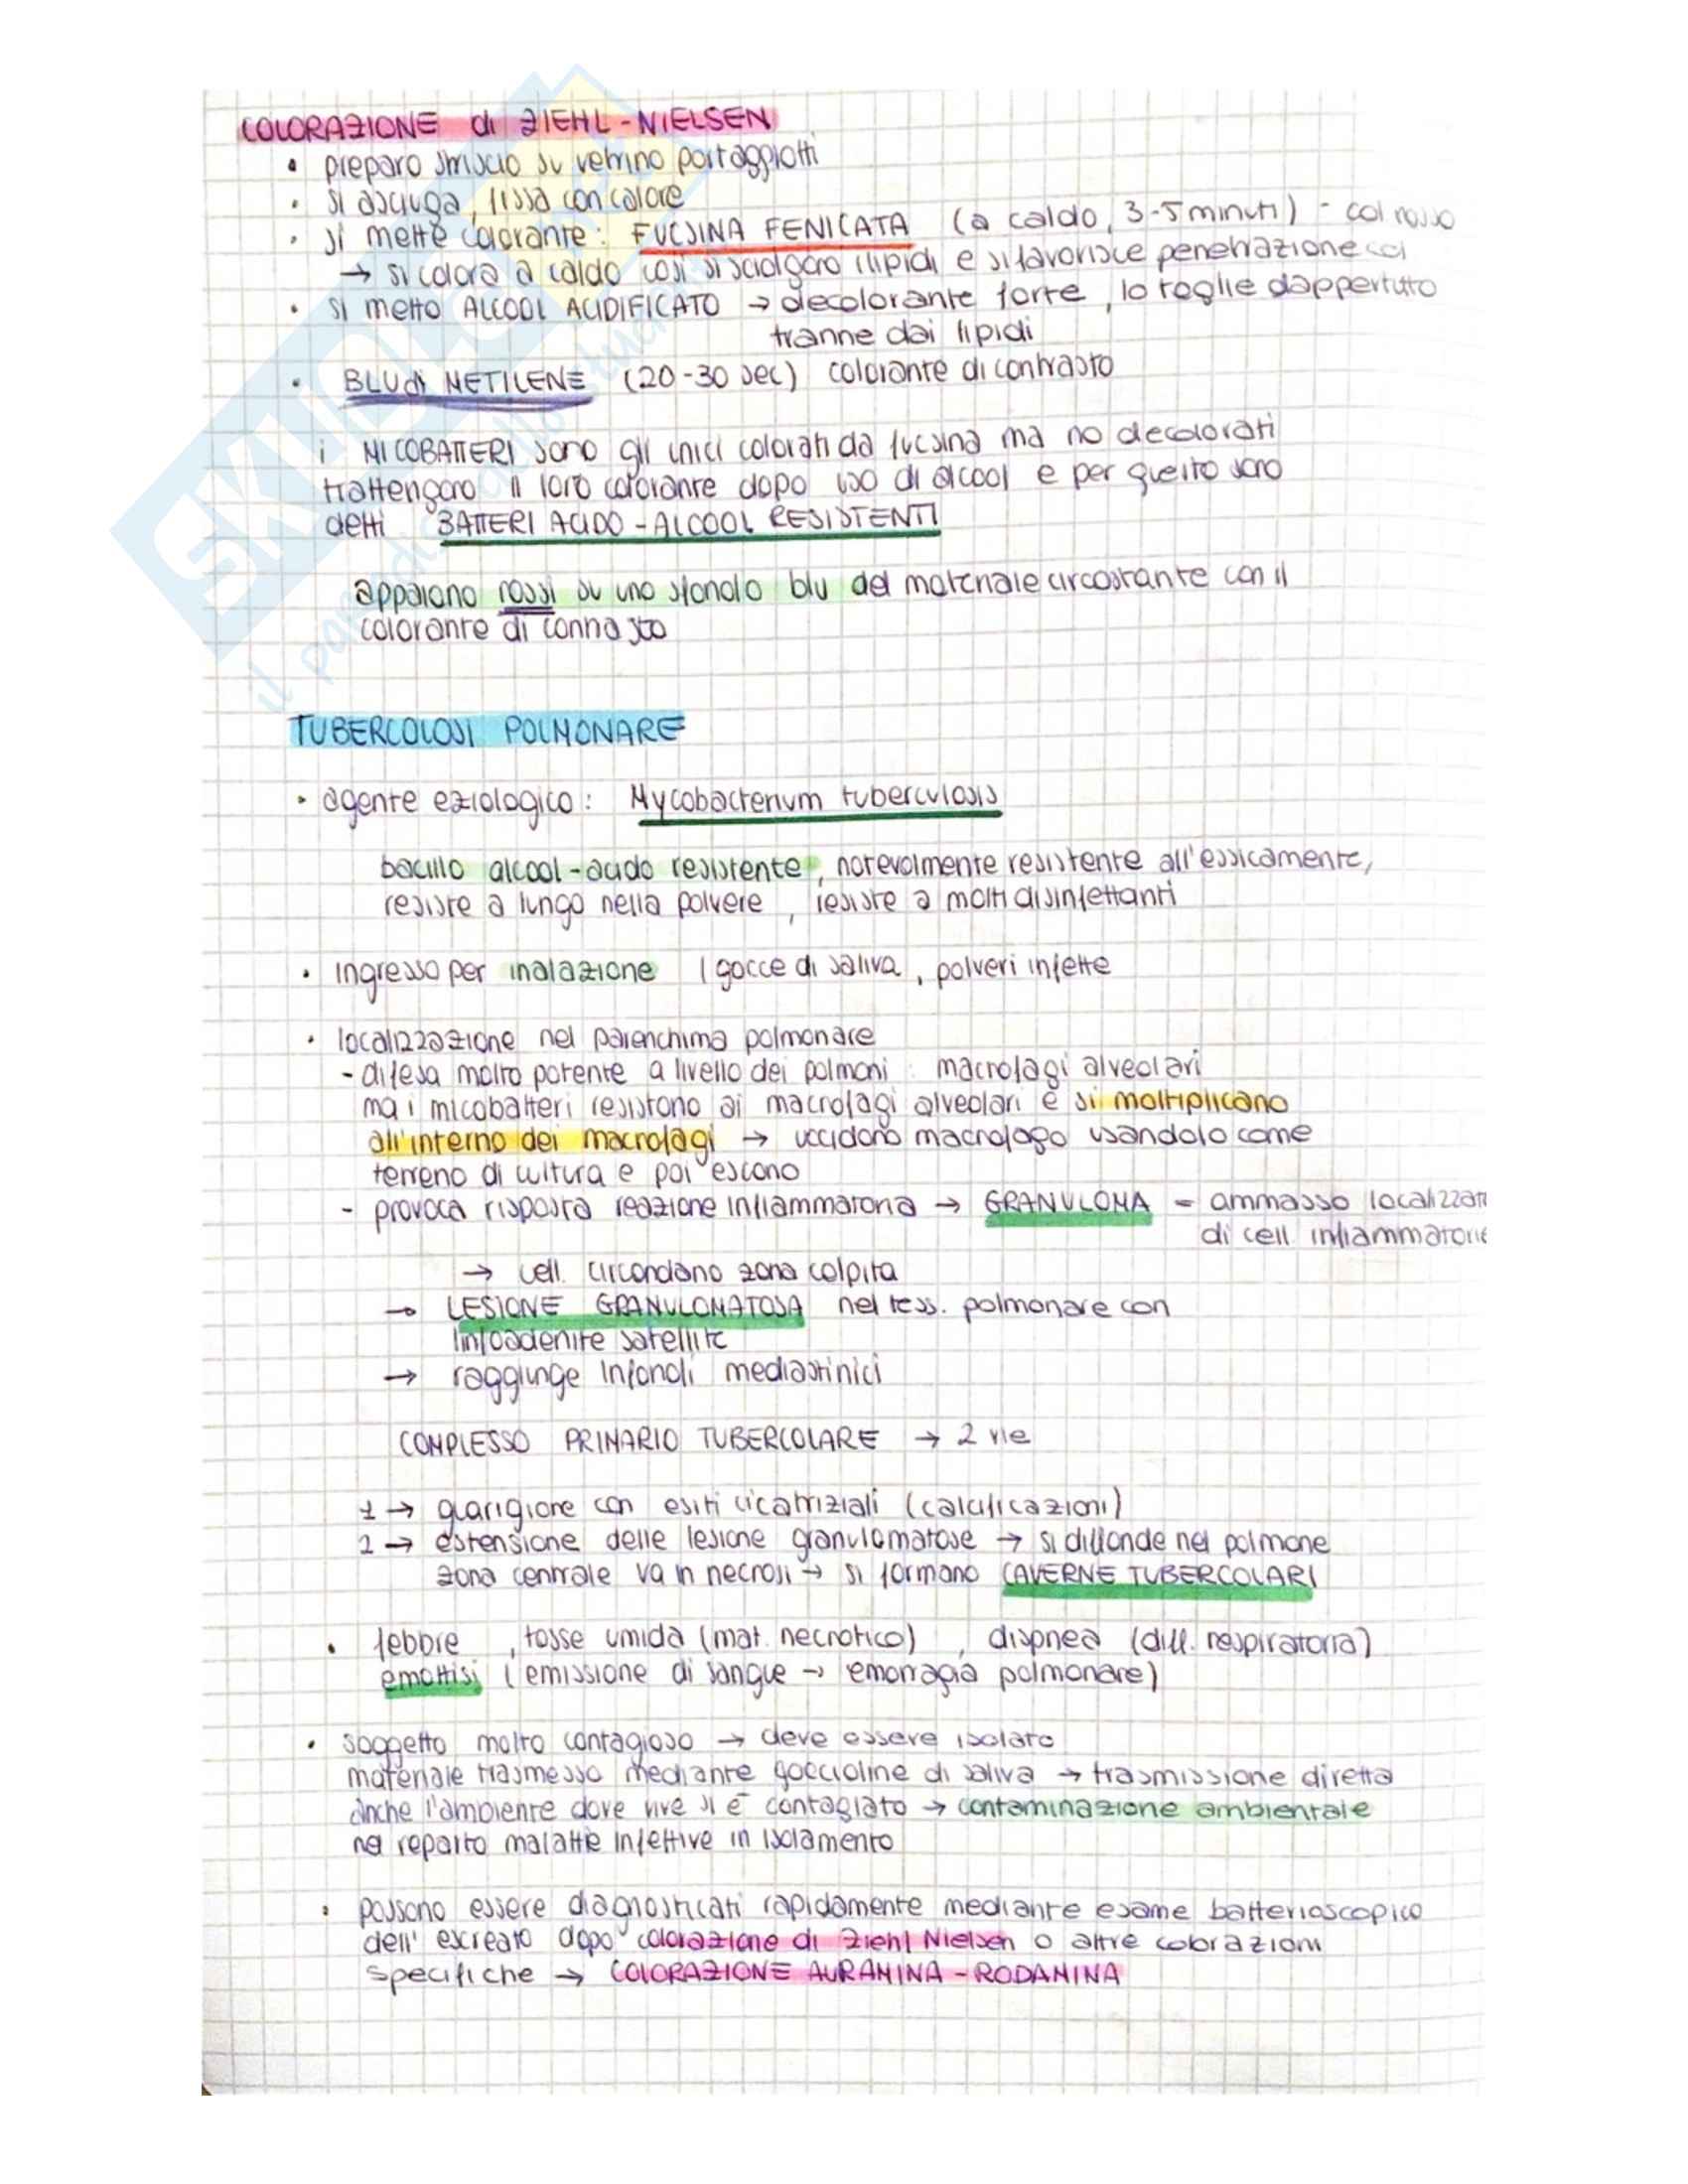 COLORAZIONE di ZIEHL-NIELSEN
• preparo striscio su vetrino portaggiotti
• si asciuga, fissa con calore
• si mette colorante: FUCSINA FENICATA (a caldo, 3-5 minuti) - col rosso
→ si colora a caldo così si sciolgono i lipidi e si favorisce penetrazione col
• si metto ALCOOL ACIDIFICATO → decolorante forte, lo toglie dappertutto
tranne dai lipidi
• BLU di METILENE (20-30 sec) colorante di contrasto
i MICOBATTERI sono gli unici colorati da fucsina ma no decolorati
trattengono il loro colorante dopo uso di alcool e per questo sono
detti BATTERI ACIDO-ALCOOL RESISTENTI
appaiono rossi su uno sfondo blu del materiale circostante con il
colorante di contrasto
TUBERCOLOSI POLMONARE
• agente eziologico: Mycobacterium tuberculosis
bacillo alcool-acido resistente, notevolmente resistente all'essicamente,
resiste a lungo nella polvere, resiste a molti disinfettanti
• ingresso per inalazione (gocce di saliva, polveri infette
• localizzazione nel parenchima polmonare
- difesa molto potente a livello dei polmoni: macrofagi alveolari
ma i micobatteri resistono ai macrofagi alveolari e si moltiplicano
all'interno dei macrofagi → uccidono macrofago usandolo come
terreno di cultura e poi escono
- provoca risposta reazione infiammatoria → GRANULOMA = ammasso localizzato
di cell infiammatorie
→ cell. circondano zona colpita
→ LESIONE GRANULOMATOSA nel tess. polmonare con
linfoadenite satellite
→ raggiunge linfonodi mediastinici
COMPLESSO PRIMARIO TUBERCOLARE → 2 vie
1 → guarigione con esiti cicatriziali (calcificazioni)
2 → estensione delle lesione granulomatose → si diffonde nel polmone
zona centrale va in necrosi → si formano CAVERNE TUBERCOLARI
• febbre, tosse umida (mat. necrotico), dispnea (diff. respiratoria)
emottisi (emissione di sangue → emorragia polmonare)
• soggetto molto contagioso → deve essere isolato
materiale trasmesso mediante goccioline di saliva → trasmissione diretta
anche l'ambiente dove vive si è contagiato → contaminazione ambientale
nel reparto malattie infettive in isolamento
• possono essere diagnosticati rapidamente mediante esame batterioscopico
dell'escreato dopo colorazione di Ziehl Nielsen o altre colorazioni
specifiche → COLORAZIONE AURAMINA-RODAMINA